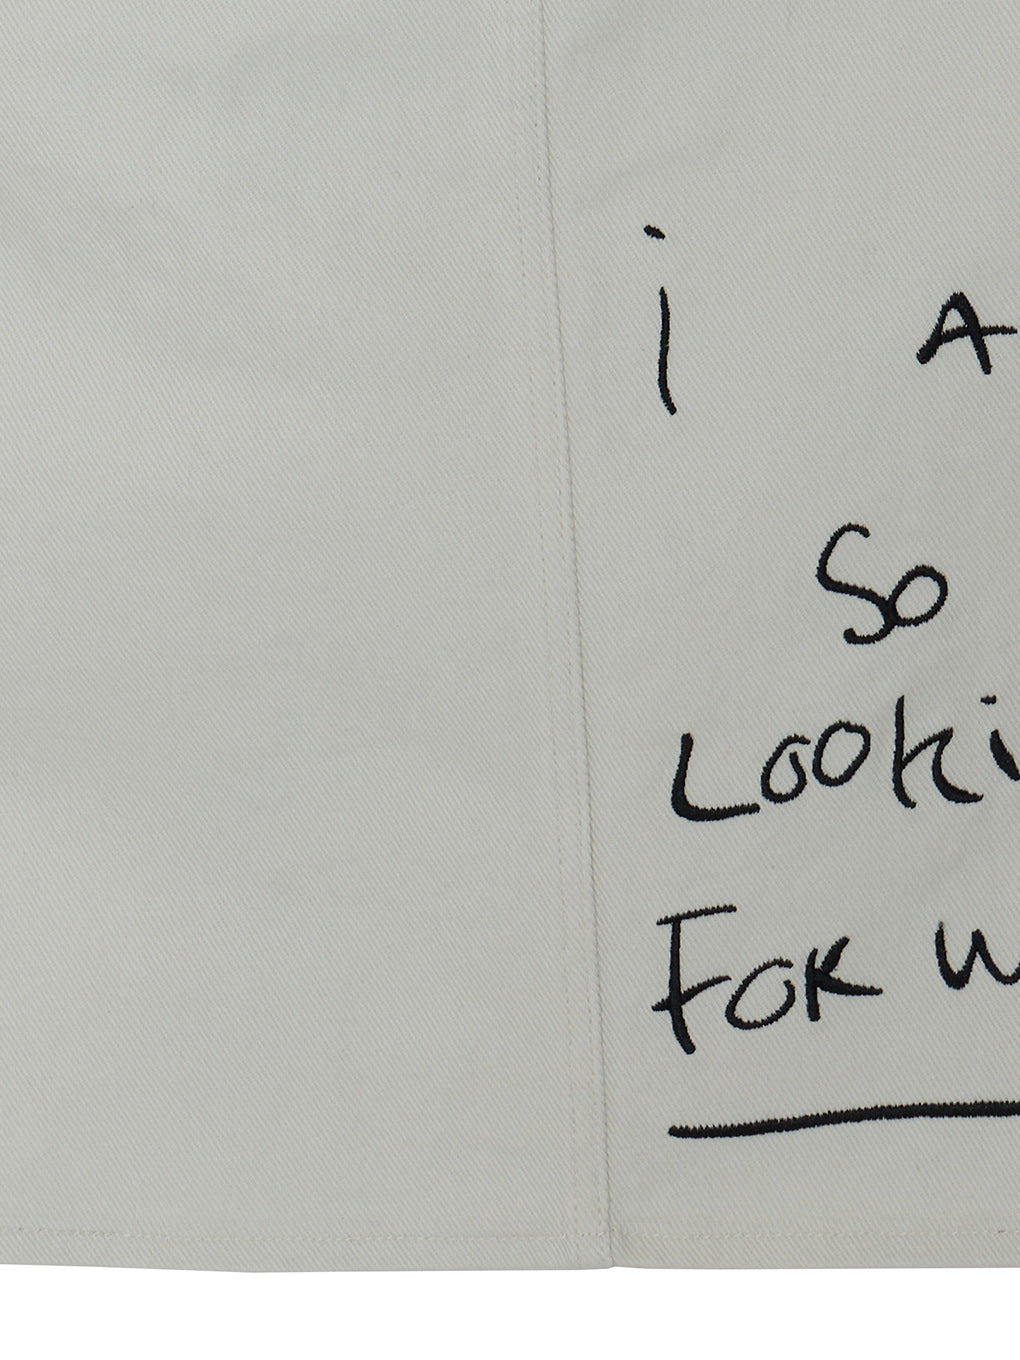 i A
So
Looki
FOR W